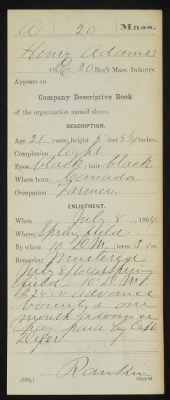 A 20 Mass.
Henry Adams
Co. E, 20 Reg't Mass. Infantry.
Appears on
Company Descriptive Book
of the organization named above.
DESCRIPTION.
Age 21 years; height 5 feet 5 ½ inches.
Complexion Light
Eyes black; hair black
Where born Canada
Occupation Farmer
ENLISTMENT.
When July 8, 1864.
Where Springfield
By whom 10 D. M.; term 3 y'rs.
Remarks: Mustered
July 8 1864 Spring
field 10 D. M.
advance
bounty & one
month advance
pay paid by Capt
Rankin
Copyist.